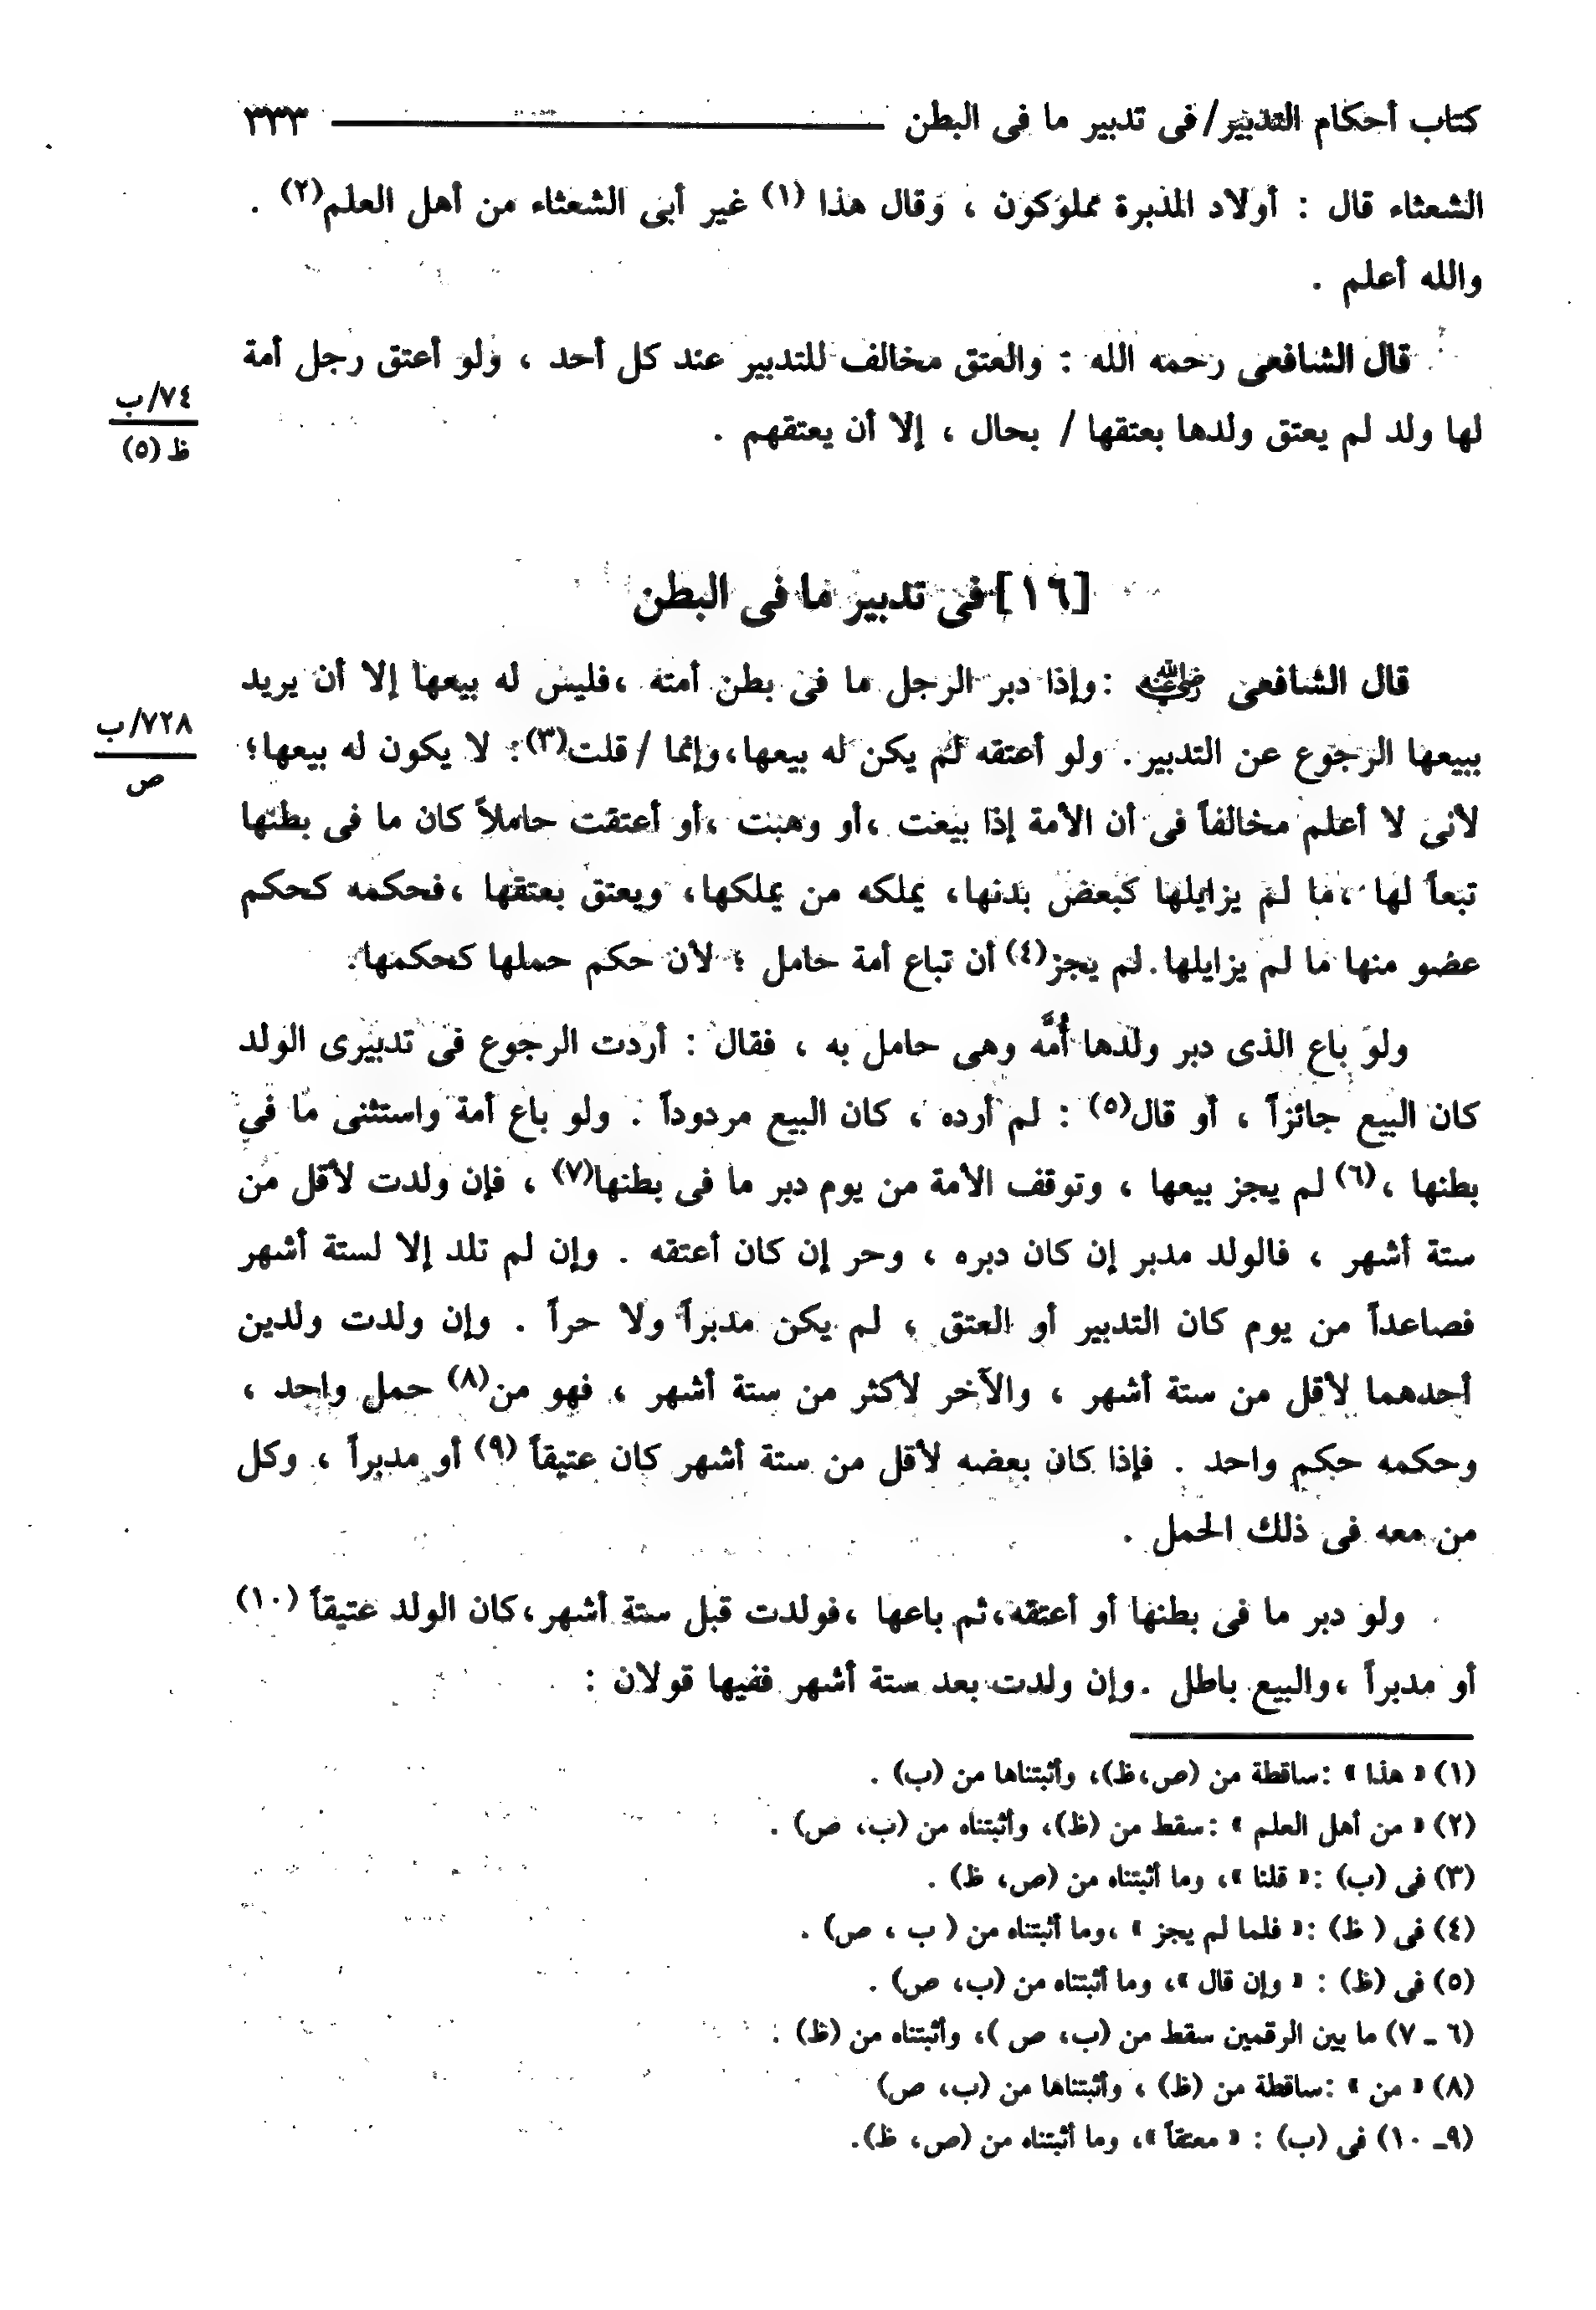 كتاب أحكام التدبير/ فى تدبير ما فى البطن ٣٣٣
الشعثاء قال : أولاد المدبرة مملوكون ، وقال هذا (١) غير أبى الشعثاء من أهل العلم(٢) .
والله أعلم .
قال الشافعى رحمه الله : والعتق مخالف للتدبير عند كل أحد ، ولو أعتق رجل أمة
لها ولد لم يعتق ولدها بعتقها / بحال ، إلا أن يعتقهم .
٧٤/ب
ظ (٥)
[١٦] فى تدبير ما فى البطن
قال الشافعى رضي الله عنه :وإذا دبر الرجل ما فى بطن أمته ،فليس له بيعها إلا أن يريد
ببيعها الرجوع عن التدبير. ولو أعتقه لم يكن له بيعها،وإنما / قلت(٣): لا يكون له بيعها؛
٧٢٨/ب
ص
لأنى لا أعلم مخالفاً فى أن الأمة إذا بيعت ،أو وهبت ،أو أعتقت حاملاً كان ما فى بطنها
تبعاً لها ،ما لم يزايلها كبعض بدنها، يملكه من يملكها، ويعتق بعتقها ،فحكمه كحكم
عضو منها ما لم يزايلها.لم يجز(٤) أن تباع أمة حامل ؛ لأن حكم حملها كحكمها.
ولو باع الذى دبر ولدها أُمَّه وهى حامل به ، فقال : أردت الرجوع فى تدبيرى الولد
كان البيع جائزاً ، أو قال(٥) : لم أرده ، كان البيع مردوداً . ولو باع أمة واستثنى ما في
بطنها ،(٦) لم يجز بيعها ، وتوقف الأمة من يوم دبر ما فى بطنها(٧) ، فإن ولدت لأقل من
ستة أشهر ، فالولد مدبر إن كان دبره ، وحر إن كان أعتقه . وإن لم تلد إلا لستة أشهر
فصاعداً من يوم كان التدبير أو العتق ، لم يكن مدبراً ولا حراً . وإن ولدت ولدين
أحدهما لأقل من ستة أشهر ، والآخر لأكثر من ستة أشهر ، فهو من(٨) حمل واحد ،
وحكمه حكم واحد . فإذا كان بعضه لأقل من ستة أشهر كان عتيقاً (٩) أو مدبراً ، وكل
من معه فى ذلك الحمل .
ولو دبر ما فى بطنها أو أعتقه،ثم باعها ،فولدت قبل ستة أشهر،كان الولد عتيقاً (١٠)
أو مدبراً ،والبيع باطل .وإن ولدت بعد ستة أشهر ففيها قولان :
(١) « هذا » :ساقطة من (ص،ظ)، وأثبتناها من (ب) .
(٢) « من أهل العلم » :سقط من (ظ)، وأثبتناه من (ب، ص) .
(٣) فى (ب) :« قلنا »، وما أثبتناه من (ص، ظ) .
(٤) فى ( ظ) :« فلما لم يجز » ،وما أثبتناه من ( ب ، ص) .
(٥) فى (ظ) : « وإن قال »، وما أثبتناه من (ب، ص) .
(٦ ـ ٧) ما بين الرقمين سقط من (ب، ص )، وأثبتناه من (ظ) .
(٨) « من » :ساقطة من (ظ) ، وأثبتناها من (ب، ص)
(٩ـ ١٠) فى (ب) : « معتقاً »، وما أثبتناه من (ص، ظ).